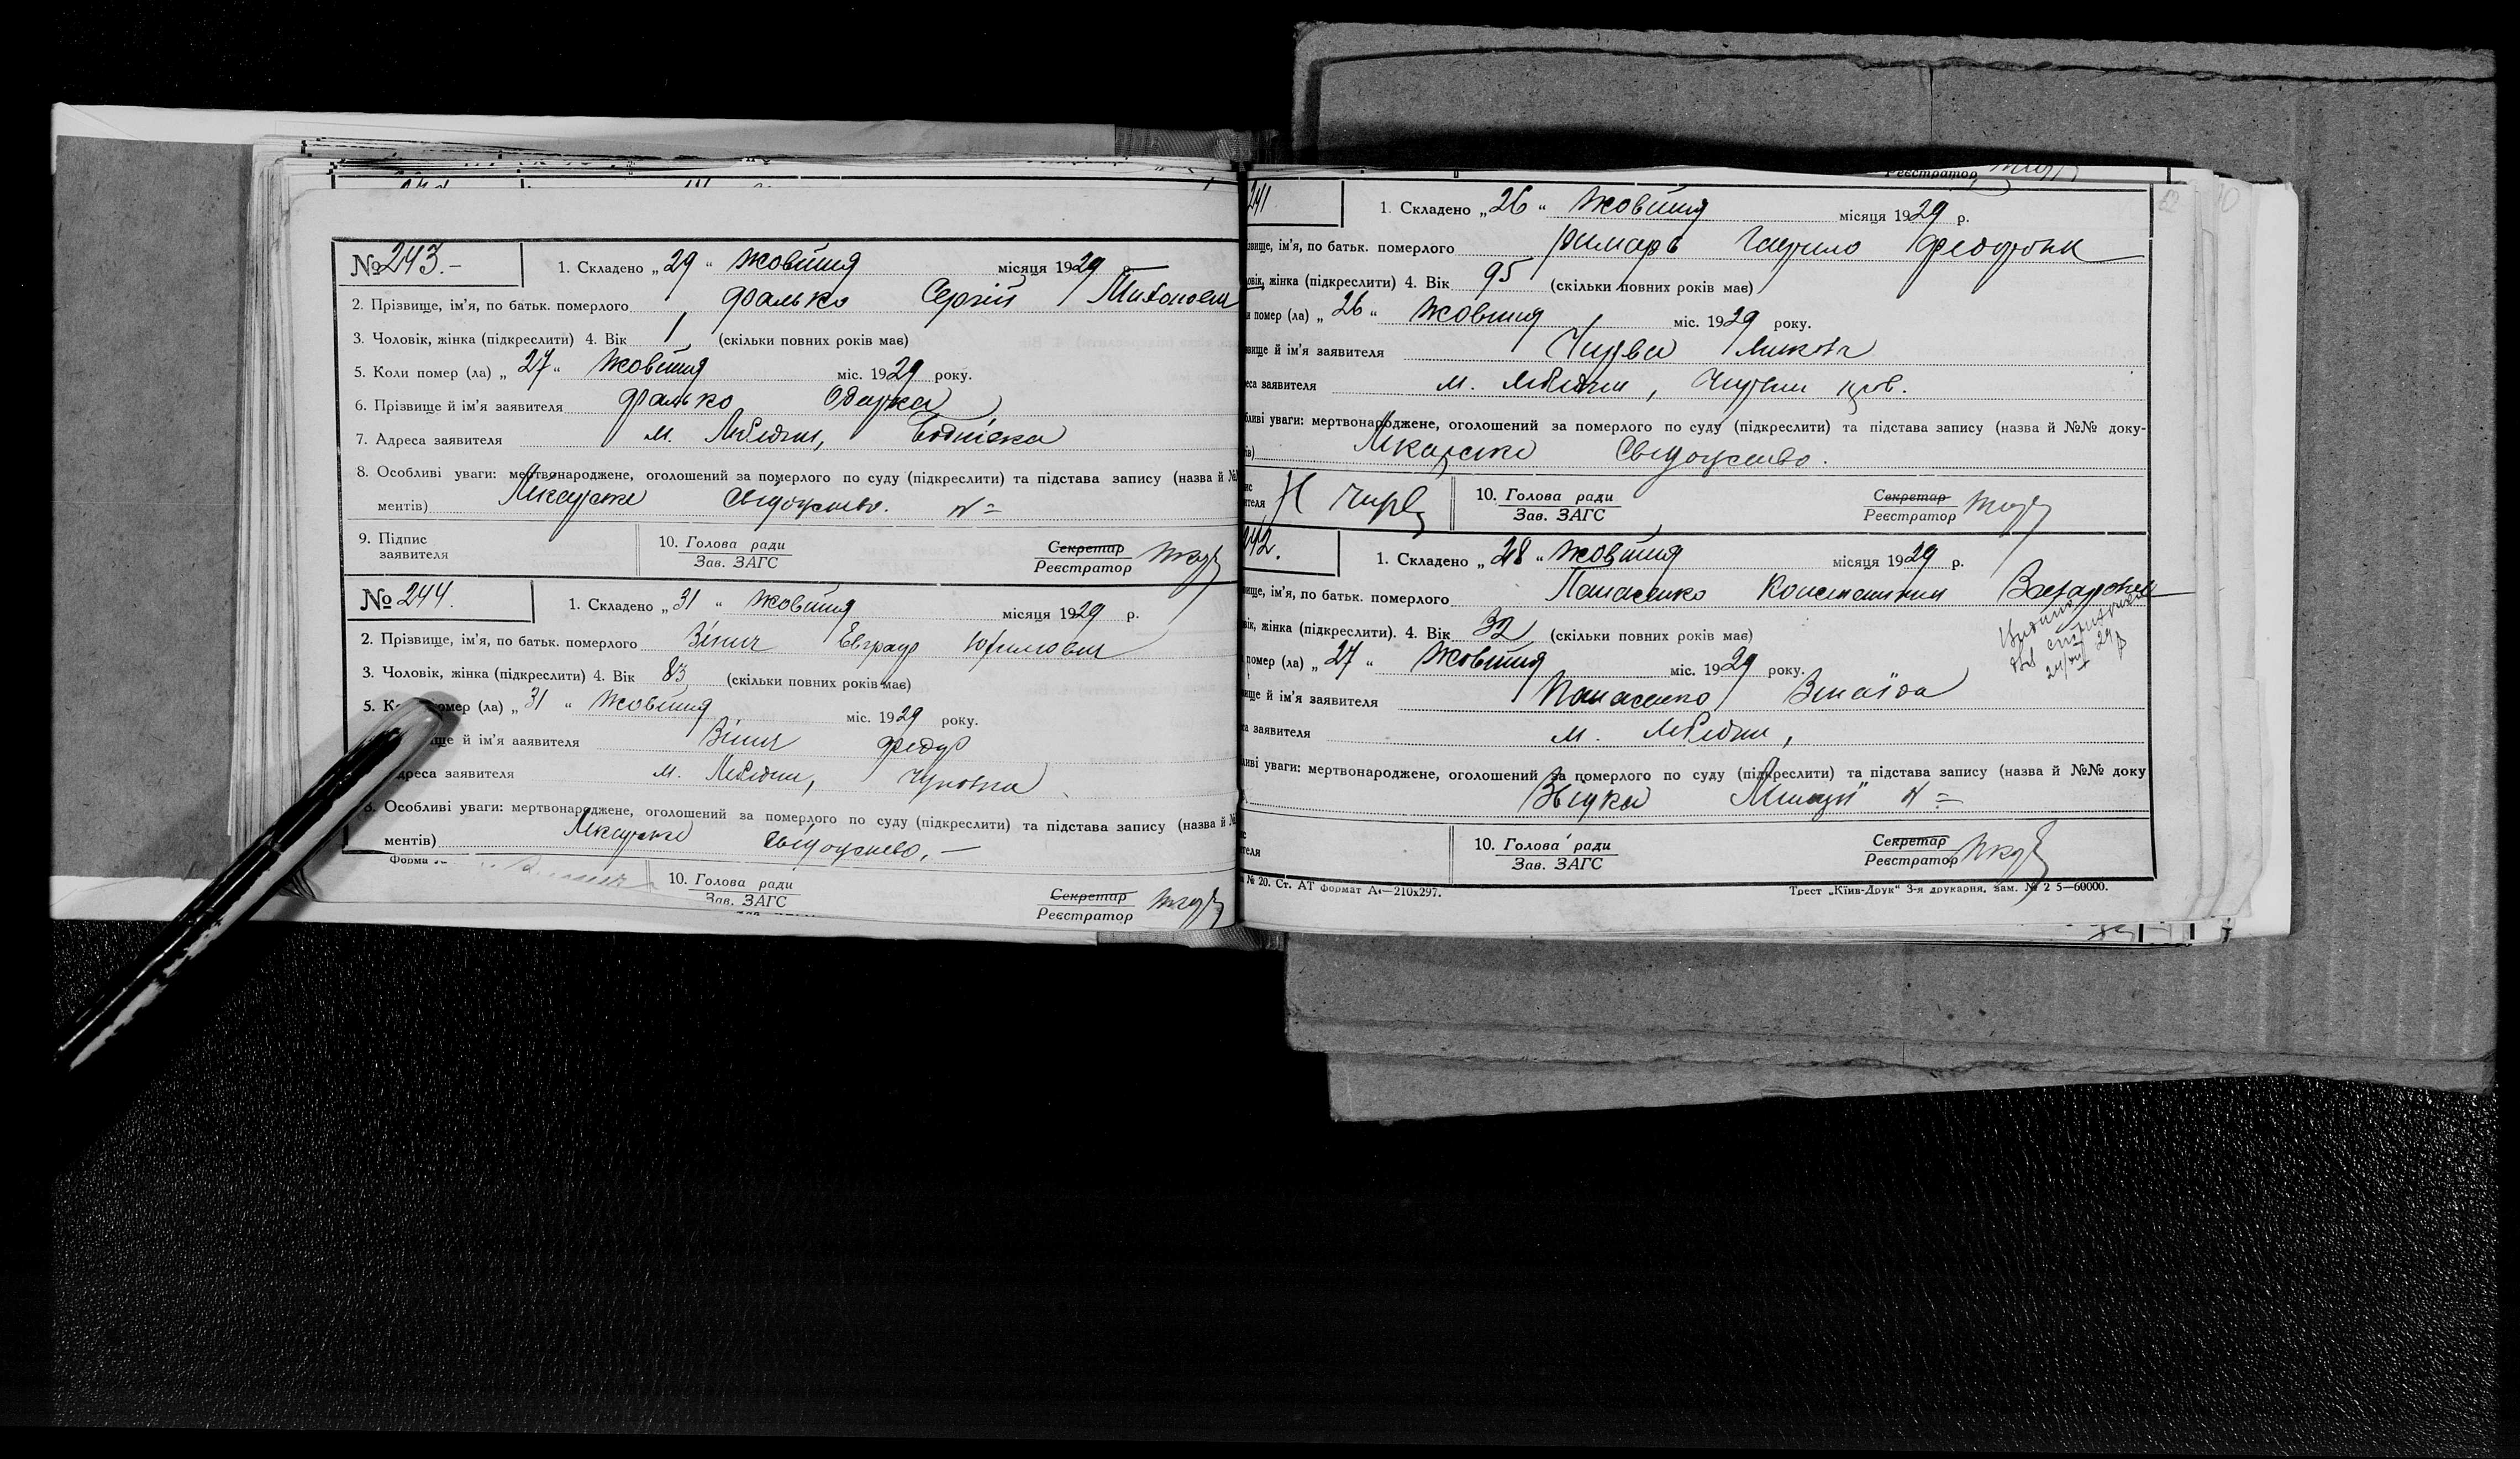 № 243.-
1. Складено „29" жовтня місяця 1929 р.
2. Прізвище, ім'я, по батьк. померлого Фалько Сергій Тихонович
3. Чоловік, жінка (підкреслити) 4. Вік 1 (скільки повних років має)
5. Коли помер (ла) „27" жовтня міс. 1929 року.
6. Прізвище й ім'я заявителя Фалько Одарка
7. Адреса заявителя м. Лебедин,
8. Особливі уваги: мертвонароджене, оголошений за померлого по суду (підкреслити) та підстава запису (назва й №
ментів) Лікарське свідоцтво. №=
9. Підпис
заявителя
10. Голова ради
Зав. ЗАГС
Секретар
Реєстратор
№ 244.
1. Складено „31" жовтня місяця 1929 р.
2. Прізвище, ім'я, по батьк. померлого Евграф Юхимович
3. Чоловік, жінка (підкреслити) 4. Вік 83 (скільки повних років має)
5. К омер (ла) „31" жовтня міс. 1929 року.
ще й ім'я аявителя Федір
дреса заявителя м. Лебедин,
8. Особливі уваги: мертвонароджене, оголошений за померлого по суду (підкреслити) та підстава запису (назва й №
ментів) Лікарське свідоцтво.—
Форма
10. Голова ради
Зав. ЗАГС
Секретар
Реєстратор
Реєстратор
241
1. Складено „26" жовтня місяця 1929 р.
звище, ім'я, по батьк. померлого Римарь Гаврило
овік, жінка (підкреслити) 4. Вік 95 (скільки повних років має)
и помер (ла) „26" жовтня міс. 1929 року.
звище й ім'я заявителя Чирва
еса заявителя м. Лебедин,
бливі уваги: мертвонароджене, оголошений за померлого по суду (підкреслити) та підстава запису (назва й №№ доку-
ів) Лікарське свідоцтво.
10. Голова ради
Зав. ЗАГС
Секретар
Реєстратор
242.
1. Складено „28" жовтня місяця 1929 р.
вище, ім'я, по батьк. померлого Панасенко Константин Захарович
вік, жінка (підкреслити). 4. Вік 32 (скільки повних років має)
помер (ла) „27" жовтня міс. 1929 року.
вище й ім'я заявителя Панасенко Зінаїда
са заявителя м. Лебедин,
ливі уваги: мертвонароджене, оголошений за померлого по суду (підкреслити) та підстава запису (назва й №№ доку
№=
10. Голова ради
Зав. ЗАГС
Секретар
Реєстратор
№ 20. Ст. АТ формат А₄—210х297.
Трест „Київ-Друк" 3-я друкарня, зам. № 2 5—60000.